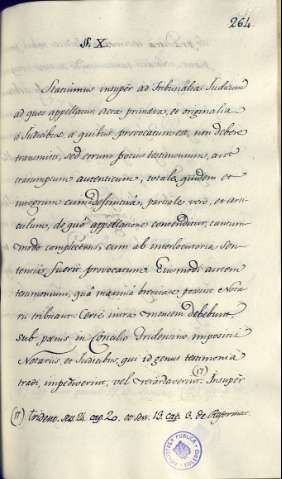 264
§. X.
Statuimus insuper ad Tribunalia Iudicum
ad quos appellatur, acta primæva, et originalia
a Iudicibus, a quibus provocatum est, non debere
transmitti, sed eorum potius testimonium, aut
transumptum autenticum, totale quidem et
integrum cum definitiva, partiale vero, et arti-
culum, de quo appellatione contenditur, tantum-
modo complectens, cum ab interlocutoria sen-
tentia, fuerit provocatum. Eiusmodi autem
testimonium, quâ maximâ brevitate possint Nota-
rii tribuant. Certe intra mensem debebunt
sub pœnis in Concilio Tridentino impositis
Notariis, et Iudicibus, qui id genus testimonia
tradi, impediverint, vel retardaverint. (17) Insuper
(17) Trident. ses. 24 cap. 20. et ses. 13 cap. 3. de Reformat.
BIBLIOTECA PUBLICA